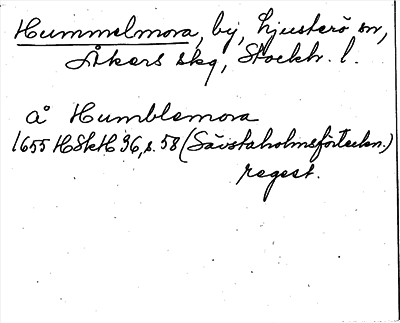 Hummelmora, by, Ljusterö sn,
Åkers skg, Stockh. l.
å Humblemora
1655 HSkH 36, s. 58 (Sävstaholmsförteckn.)
regest.